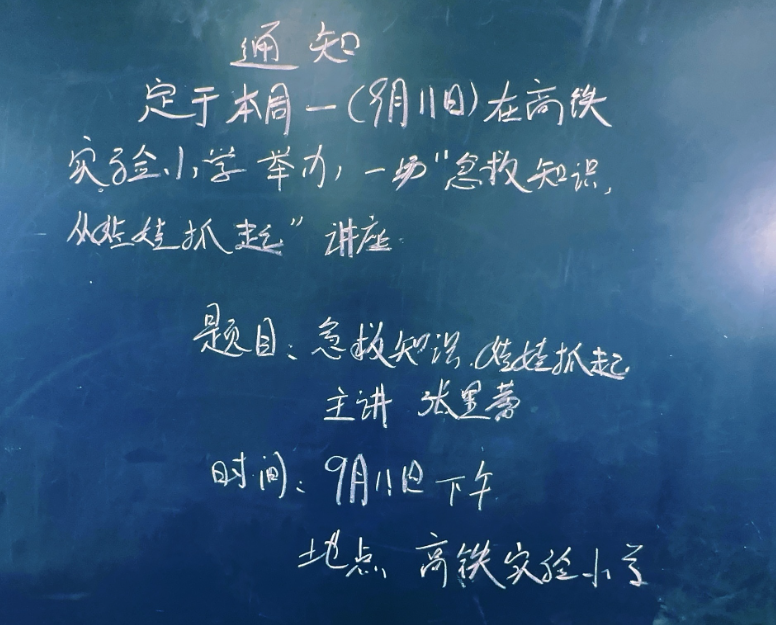 通知
定于本周一(9月11日)在高铁
实验小学举办,一场"急救知识,
从娃娃抓起"讲座.
题目:急救知识.娃娃抓起
主讲 张
时间:9月11日下午
地点 高铁实验小学